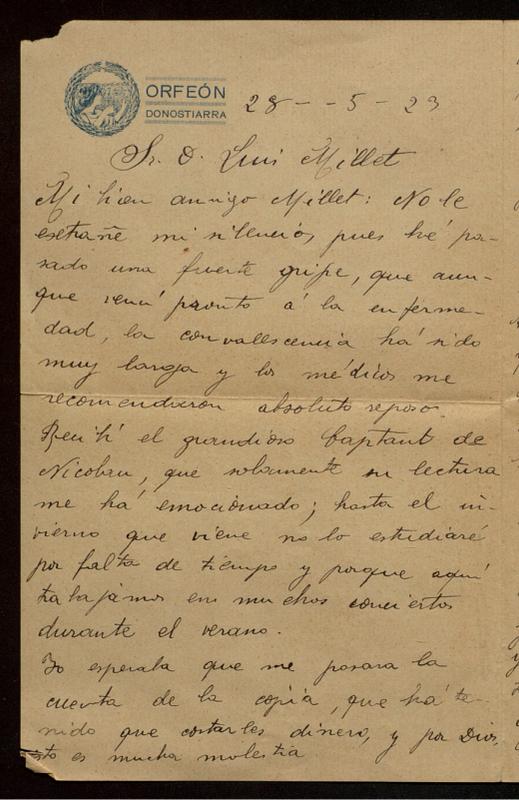 ORFEÓN
DONOSTIARRA
28 - - 5 - 23
Sr. D. Luis Millet
Mi bien amigo Millet: No le
estrañe mi silencio, pues hé pa-
sado una fuerte gripe, que aun-
que vencí pronto á la enferme-
dad, la convallescencia há sido
muy larga y los médicos me
recomendaron absoluto reposo.
Recibí el grandioso Captant de
Nicolau, que solamente su lectura
me há emocionado; hasta el in-
vierno que viene no lo estudiaré
por falta de tiempo y porque aquí
trabajamos en muchos conciertos
durante el verano.
Yo esperaba que me pasara la
cuenta de la copia, que há te-
nido que costarles dinero, y por Dios,
esto es mucha molestia